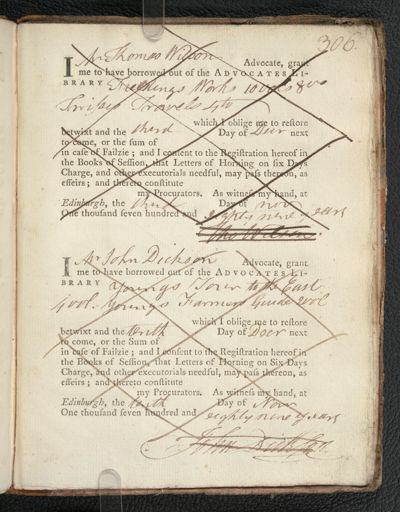 306.
I Mr Thomas Wilson Advocate, grant
me to have borrowed out of the ADVOCATES LI-
BRARY Works 10 vols 8vo
Travels 4to
which I oblige me to reſtore
betwixt and the third Day of Decr next
to come, or the ſum of
in caſe of Failzie ; and I conſent to the Regiſtration hereof in
the Books of Seſſion, that Letters of Horning on ſix Days
Charge, and other executorials needful, may paſs thereon, as
effeirs ; and thereto conſtitute
my Procurators. As witneſs my hand, at
Edinburgh, the third Day of Nov
One thouſand ſeven hundred and eighty nine years
Tho Wilson
I Mr John Dickson Advocate, grant
me to have borrowed out of the ADVOCATES LI-
BRARY Youngs Tour to the East
4 vol. Youngs Farmers Guide 2 vol
which I oblige me to reſtore
betwixt and the tenth Day of Decr next
to come, or the Sum of
in caſe of Failzie ; and I conſent to the Regiſtration hereof in
the Books of Seſſion, that Letters of Horning on Six Days
Charge, and other executorials needful, may paſs thereon, as
effeirs ; and thereto conſtitute
my Procurators. As witneſs my hand, at
Edinburgh, the tenth Day of Nov
One thouſand ſeven hundred and eighty nine years
John Dickson.